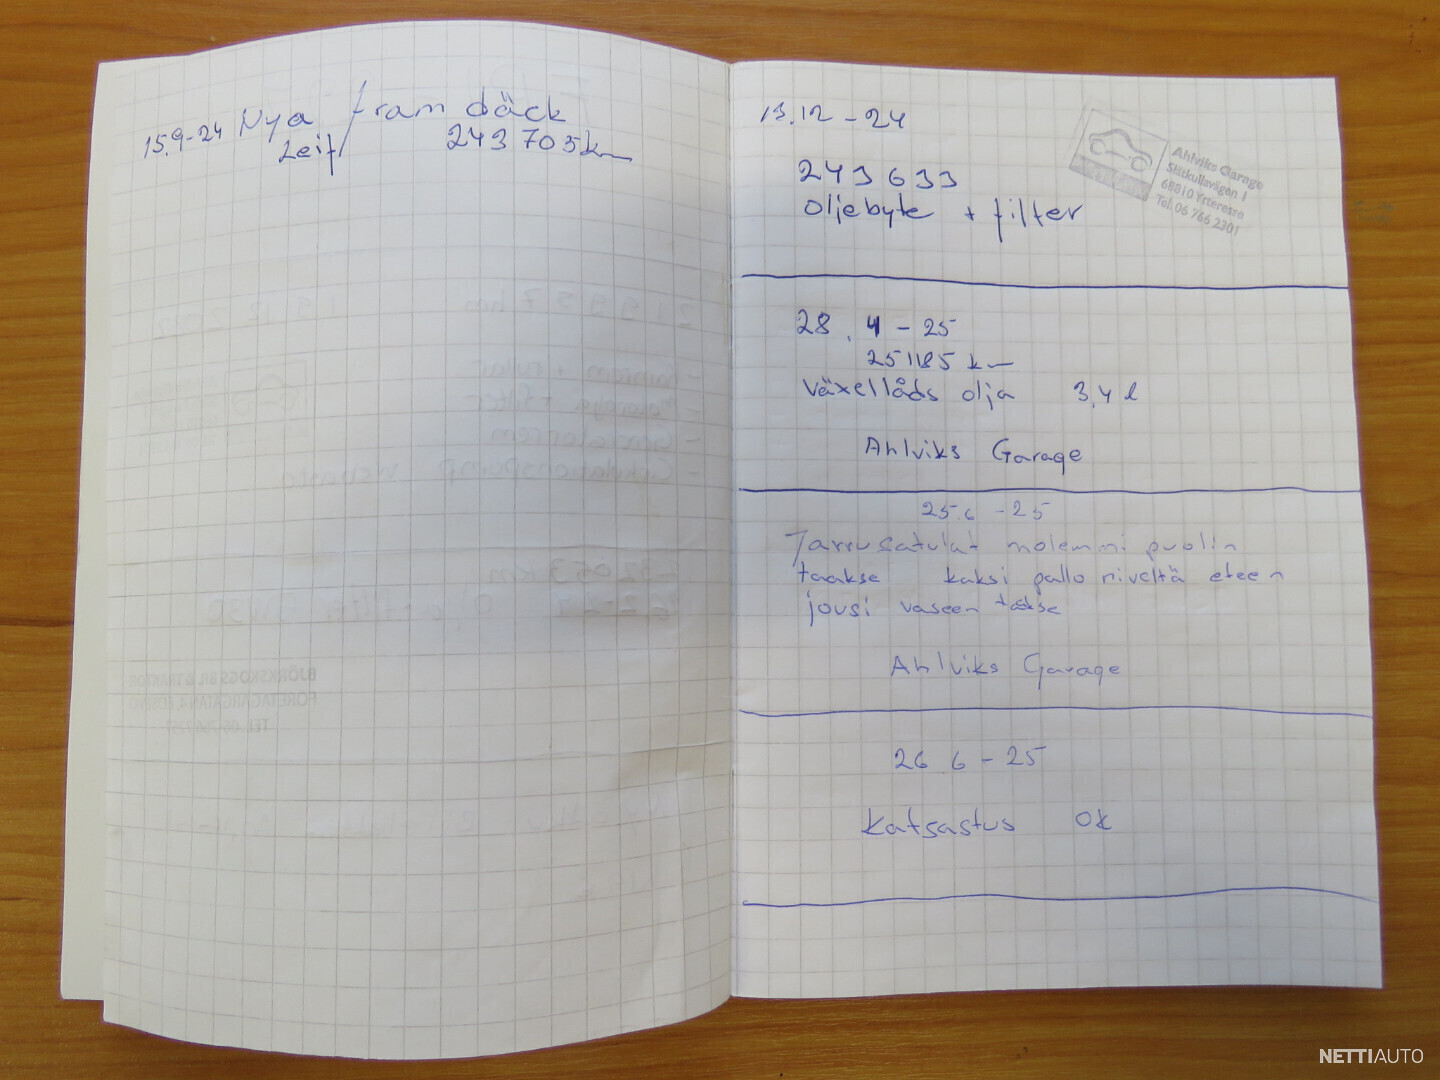 15.9-24 Nya fram däck
Leif 243 705 km
13.12-24
243 633
Oljebyte + filter
Ahlviks Garage
Slitkullavägen 1
68810 Ytteresse
Tel. 06 766 2301
28.4-25
251185 km
växellåds olja 3,4 l
Ahlviks Garage
25.6-25
Jarrusatulat molemmi puolin
taakse kaksi pallo niveltä eteen
jousi vaseen taakse
Ahlviks Garage
26 6-25
Katsastus ok
NETTIAUTO